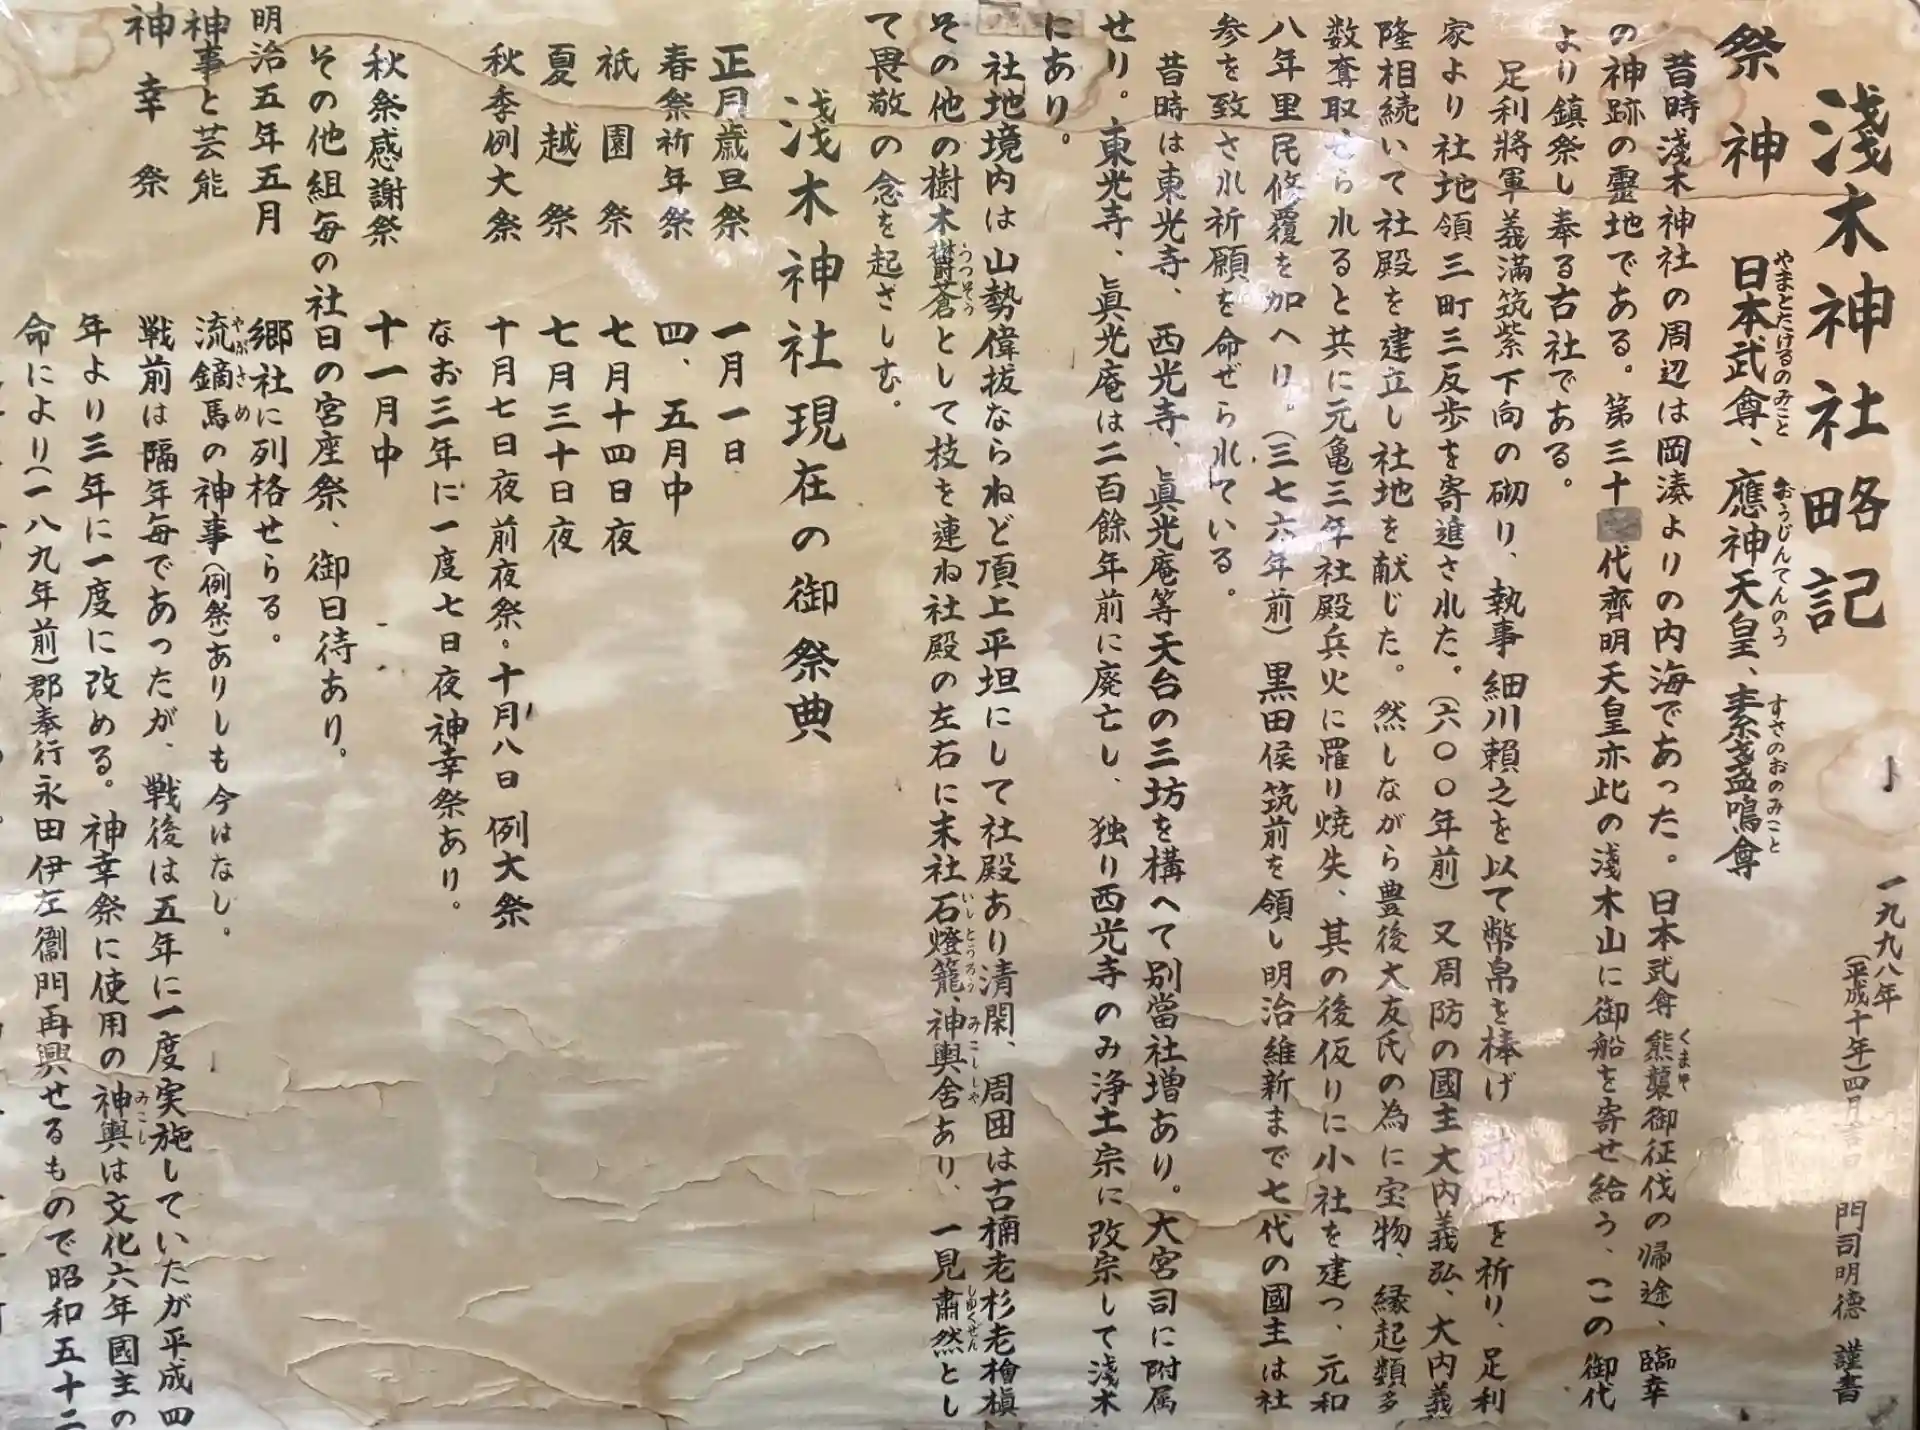 淺木神社略記
一九九八年
(平成十年)四月吉日 門司明徳 謹書
祭神 日本武尊、應神天皇、素盞鳴尊
やまとたけるのみこと おうじんてんのう すさのおのみこと
昔時淺木神社の周辺は岡湊よりの内海であった。日本武尊熊襲御征伐の帰途、臨幸
くまそ
の神跡の靈地である。第三十 代齊明天皇亦此の淺木山に御船を寄せ給う、この御代
より鎮祭し奉る古社である。
足利將軍義滿筑紫下向の砌り、執事細川頼之を以て幣帛を棒げ を祈り、足利
家より社地領三町三反歩を寄進された。(六〇〇年前)又周防の國主大内義弘、大内義
隆相続いて社殿を建立し社地を献じた。然しながら豊後大友氏の為に宝物、縁起類多
数奪取せられると共に元亀三年社殿兵火に罹り焼失、其の後仮りに小社を建つ、元和
八年里民修覆を加へり。(三七六年前)黒田侯筑前を領し明治維新まで七代の國主は社
参を致され祈願を命ぜられている。
昔時は東光寺、西光寺、眞光庵等天台の三坊を構へて別當社増あり。大宮司に附属
せり。東光寺、眞光庵は二百餘年前に廃亡し、独り西光寺のみ浄土宗に改宗して淺木
にあり。
社地境内は山勢偉抜ならねど頂上平坦にして社殿あり清閑、周囲は古楠老杉老檜槇
その他の樹木欝蒼として枝を連ね社殿の左右に末社石燈籠、神輿舎あり、一見粛然とし
うつそう いしとうろう みこししや しゅくぜん
て畏敬の念を起さしむ。
淺木神社現在の御祭典
正月歳旦祭 一月一日
春祭祈年祭 四、五月中
祇園祭 七月十四日夜
夏越祭 七月三十日夜
秋季例大祭 十月七日夜前夜祭。十月八日例大祭
なお三年に一度七日夜神幸祭あり。
秋祭感謝祭 十一月中
その他組毎の社日の宮座祭、御日待あり。
明治五年五月 郷社に列格せらる。
神事と芸能 流鏑馬の神事(例祭)ありしも今はなし。
やぶさめ
神幸祭 戦前は隔年毎であったが、戦後は五年に一度実施していたが平成四
年より三年に一度に改める。神幸祭に使用の神輿は文化六年國主の
みこし
命により(一八九年前)郡奉行永田伊左衞門再興せるもので昭和五十二